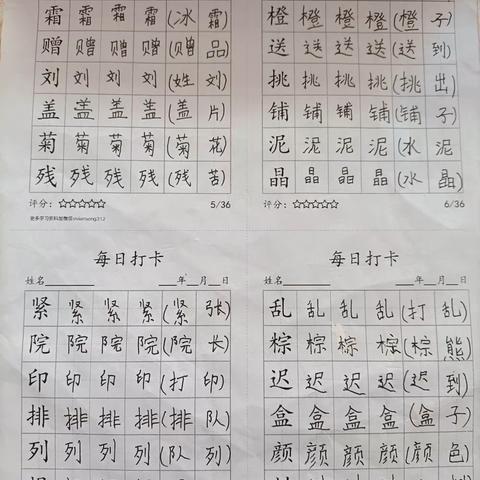 霜 霜 霜 霜 (冰 霜)
赠 赠 赠 赠 (赠 品)
刘 刘 刘 刘 (姓 刘)
盖 盖 盖 盖 (盖 片)
菊 菊 菊 菊 (菊 花)
残 残 残 残 (残 苦)
评分：☆☆☆☆☆ 5/36
橙 橙 橙 橙 (橙 子)
送 送 送 送 (送 到)
挑 挑 挑 挑 (挑 出)
铺 铺 铺 铺 (铺 子)
泥 泥 泥 泥 (水 泥)
晶 晶 晶 晶 (水 晶)
评分：☆☆☆☆☆ 6/36
每日打卡
姓名________ ___年__月__日
紧 紧 紧 紧 (紧 张)
院 院 院 院 (院 长)
印 印 印 印 (打 印)
排 排 排 排 (排 队)
列 列 列 列 (队 列)
每日打卡
姓名________ ___年__月__日
乱 乱 乱 乱 (打 乱)
棕 棕 棕 棕 (棕 熊)
迟 迟 迟 迟 (迟 到)
盒 盒 盒 盒 (盒 子)
颜 颜 颜 颜 (颜 色)